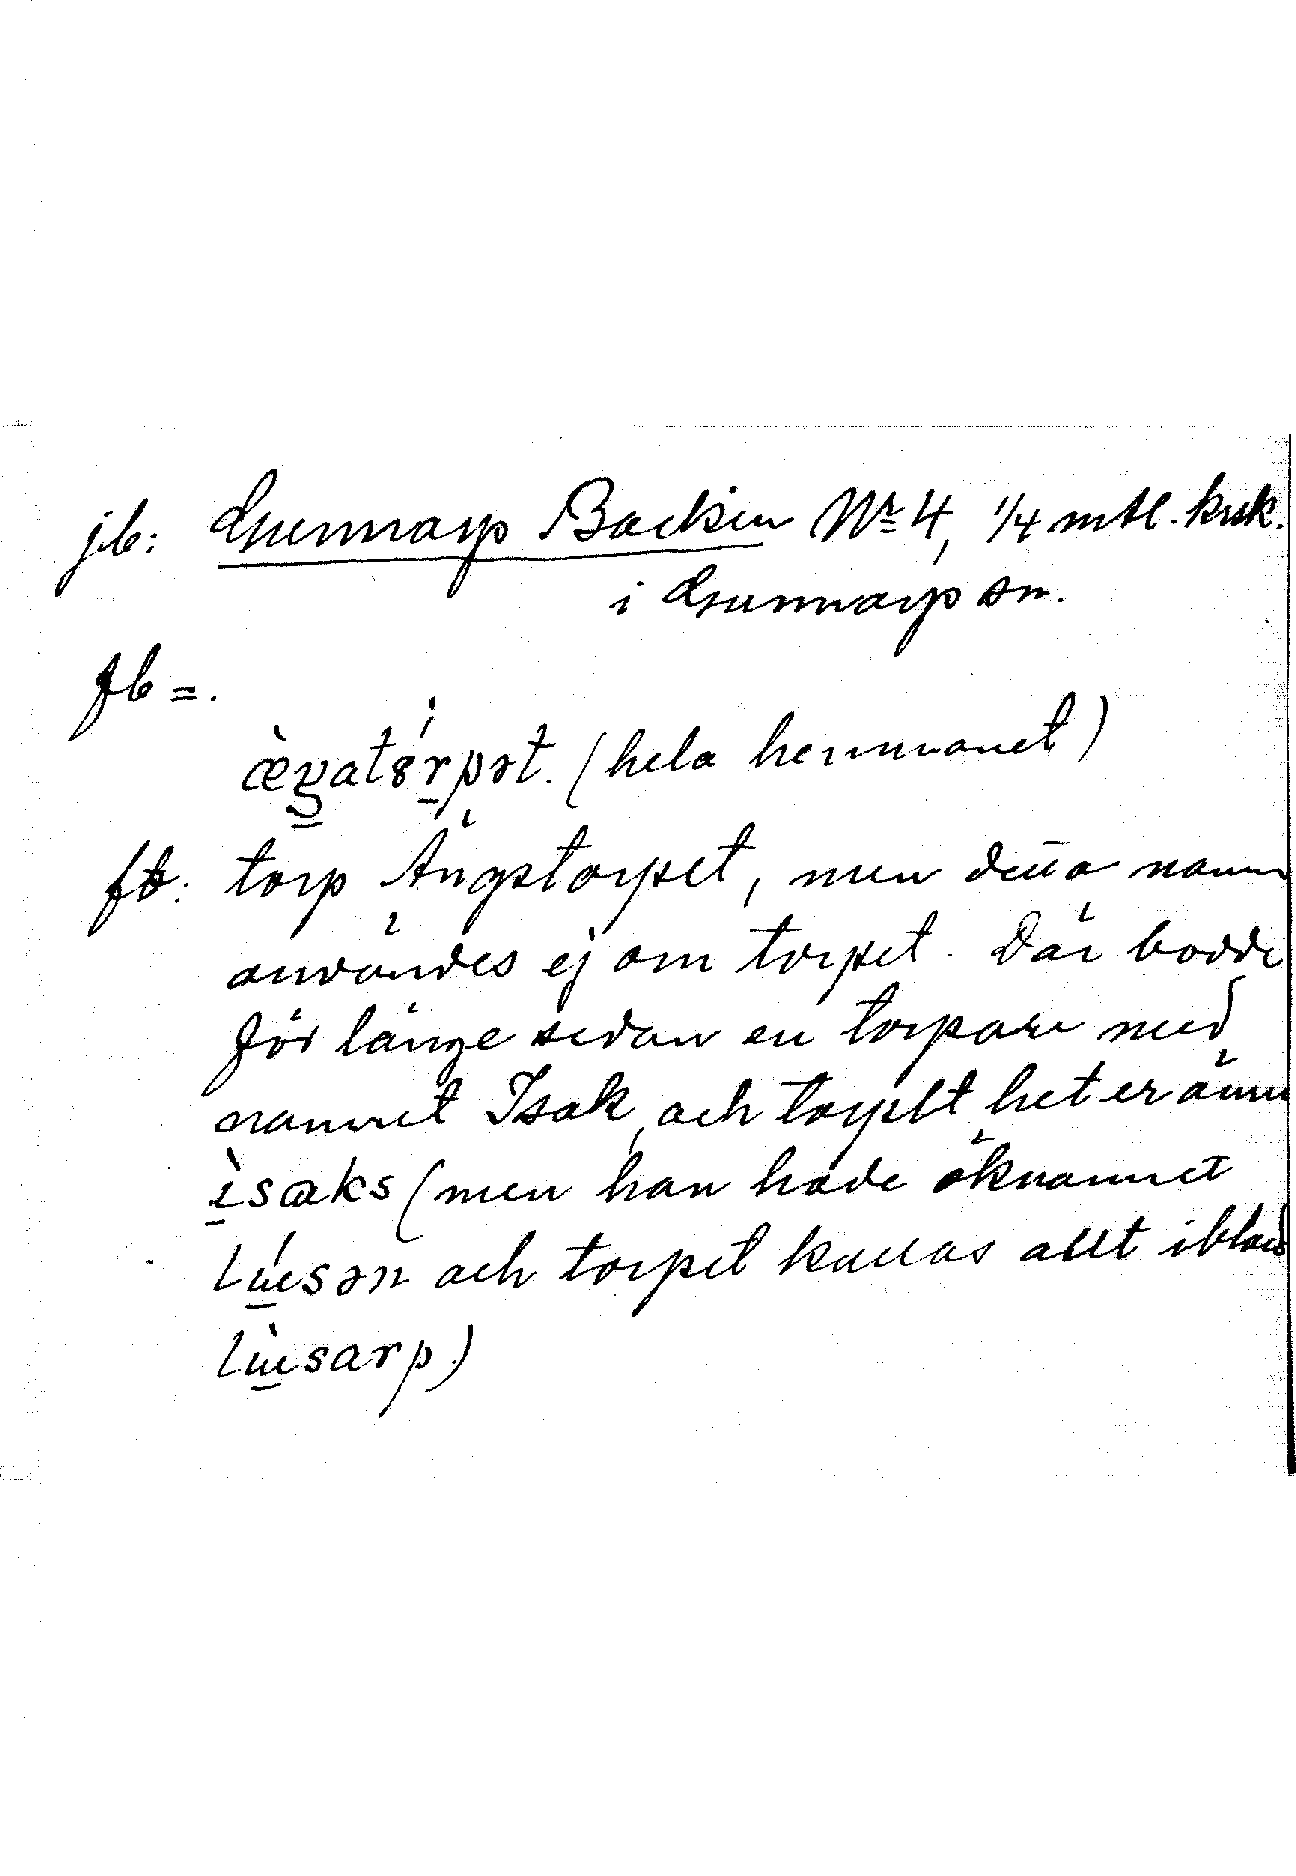 jb: Gunnarp Backen No 4, 1/4 mtl. krsk.
i Gunnarp sn.
fb =.
æ̀ŋatɞ́rpət. (hela hemmanet)
fb: torp Ängstorpet, men detta namn
användes ej om torpet. Där bodde
för länge sedan en torpare med
namnet Isak, och torpet heter ännu
ìsaks (men han hade öknamnet
lúsən och torpet kallas allt ibland
lùsarp.)